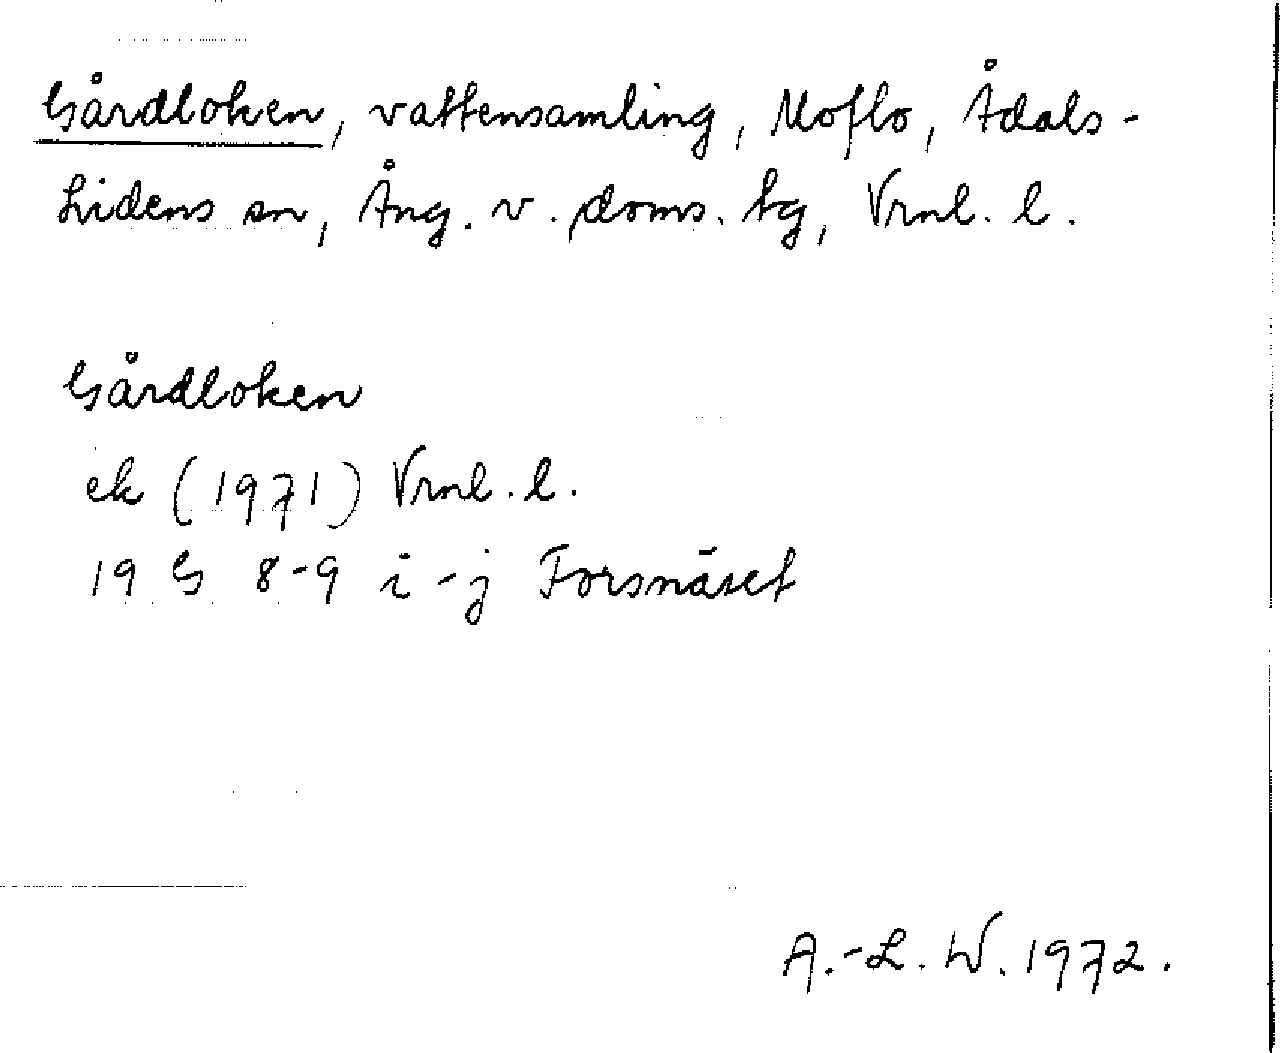 Gårdloken, vattensamling, Moflo, Ådals-
Lidens sn, Ång. v. doms. tg, Vrnl. l.
Gårdloken
ek (1971) Vrnl. l.
19 G 8-9 i-j Forsnäset
A.-L. W. 1972.